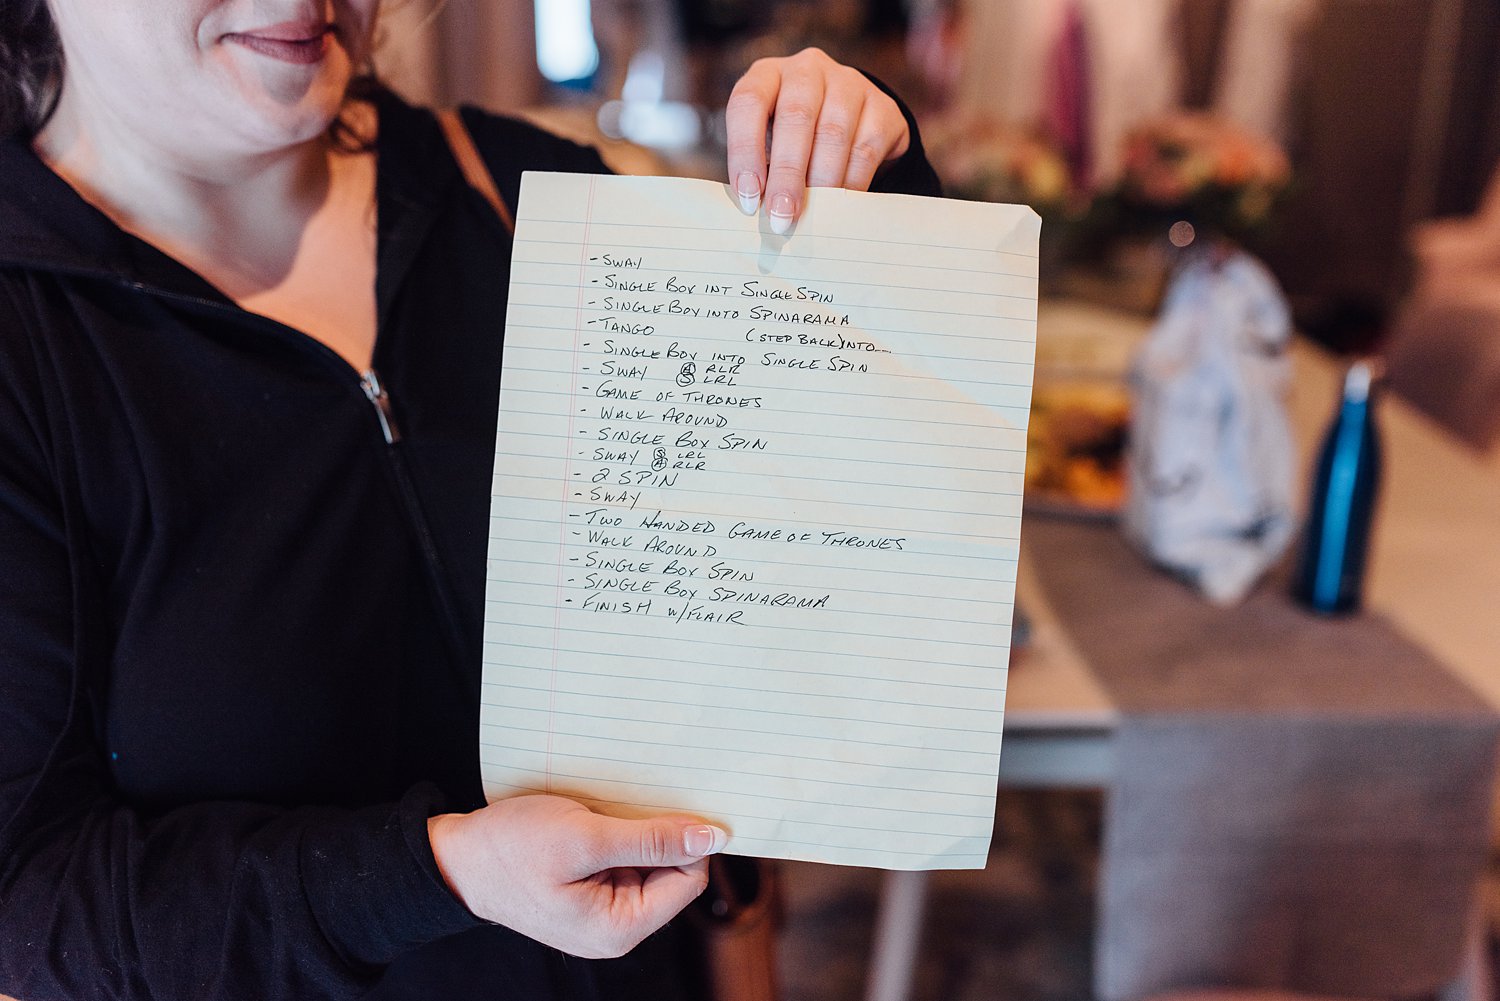 - SWAY
- SINGLE BOX INT SINGLE SPIN
- SINGLE BOX INTO SPINARAMA
- TANGO (STEP BACK) INTO...
- SINGLE BOX INTO SINGLE SPIN
- SWAY Ⓐ RLR
Ⓢ LRL
- GAME OF THRONES
- WALK AROUND
- SINGLE BOX SPIN
- SWAY Ⓢ LRL
Ⓐ RLR
- 2 SPIN
- SWAY
- TWO HANDED GAME OF THRONES
- WALK AROUND
- SINGLE BOX SPIN
- SINGLE BOX SPINARAMA
- FINISH W/FLAIR